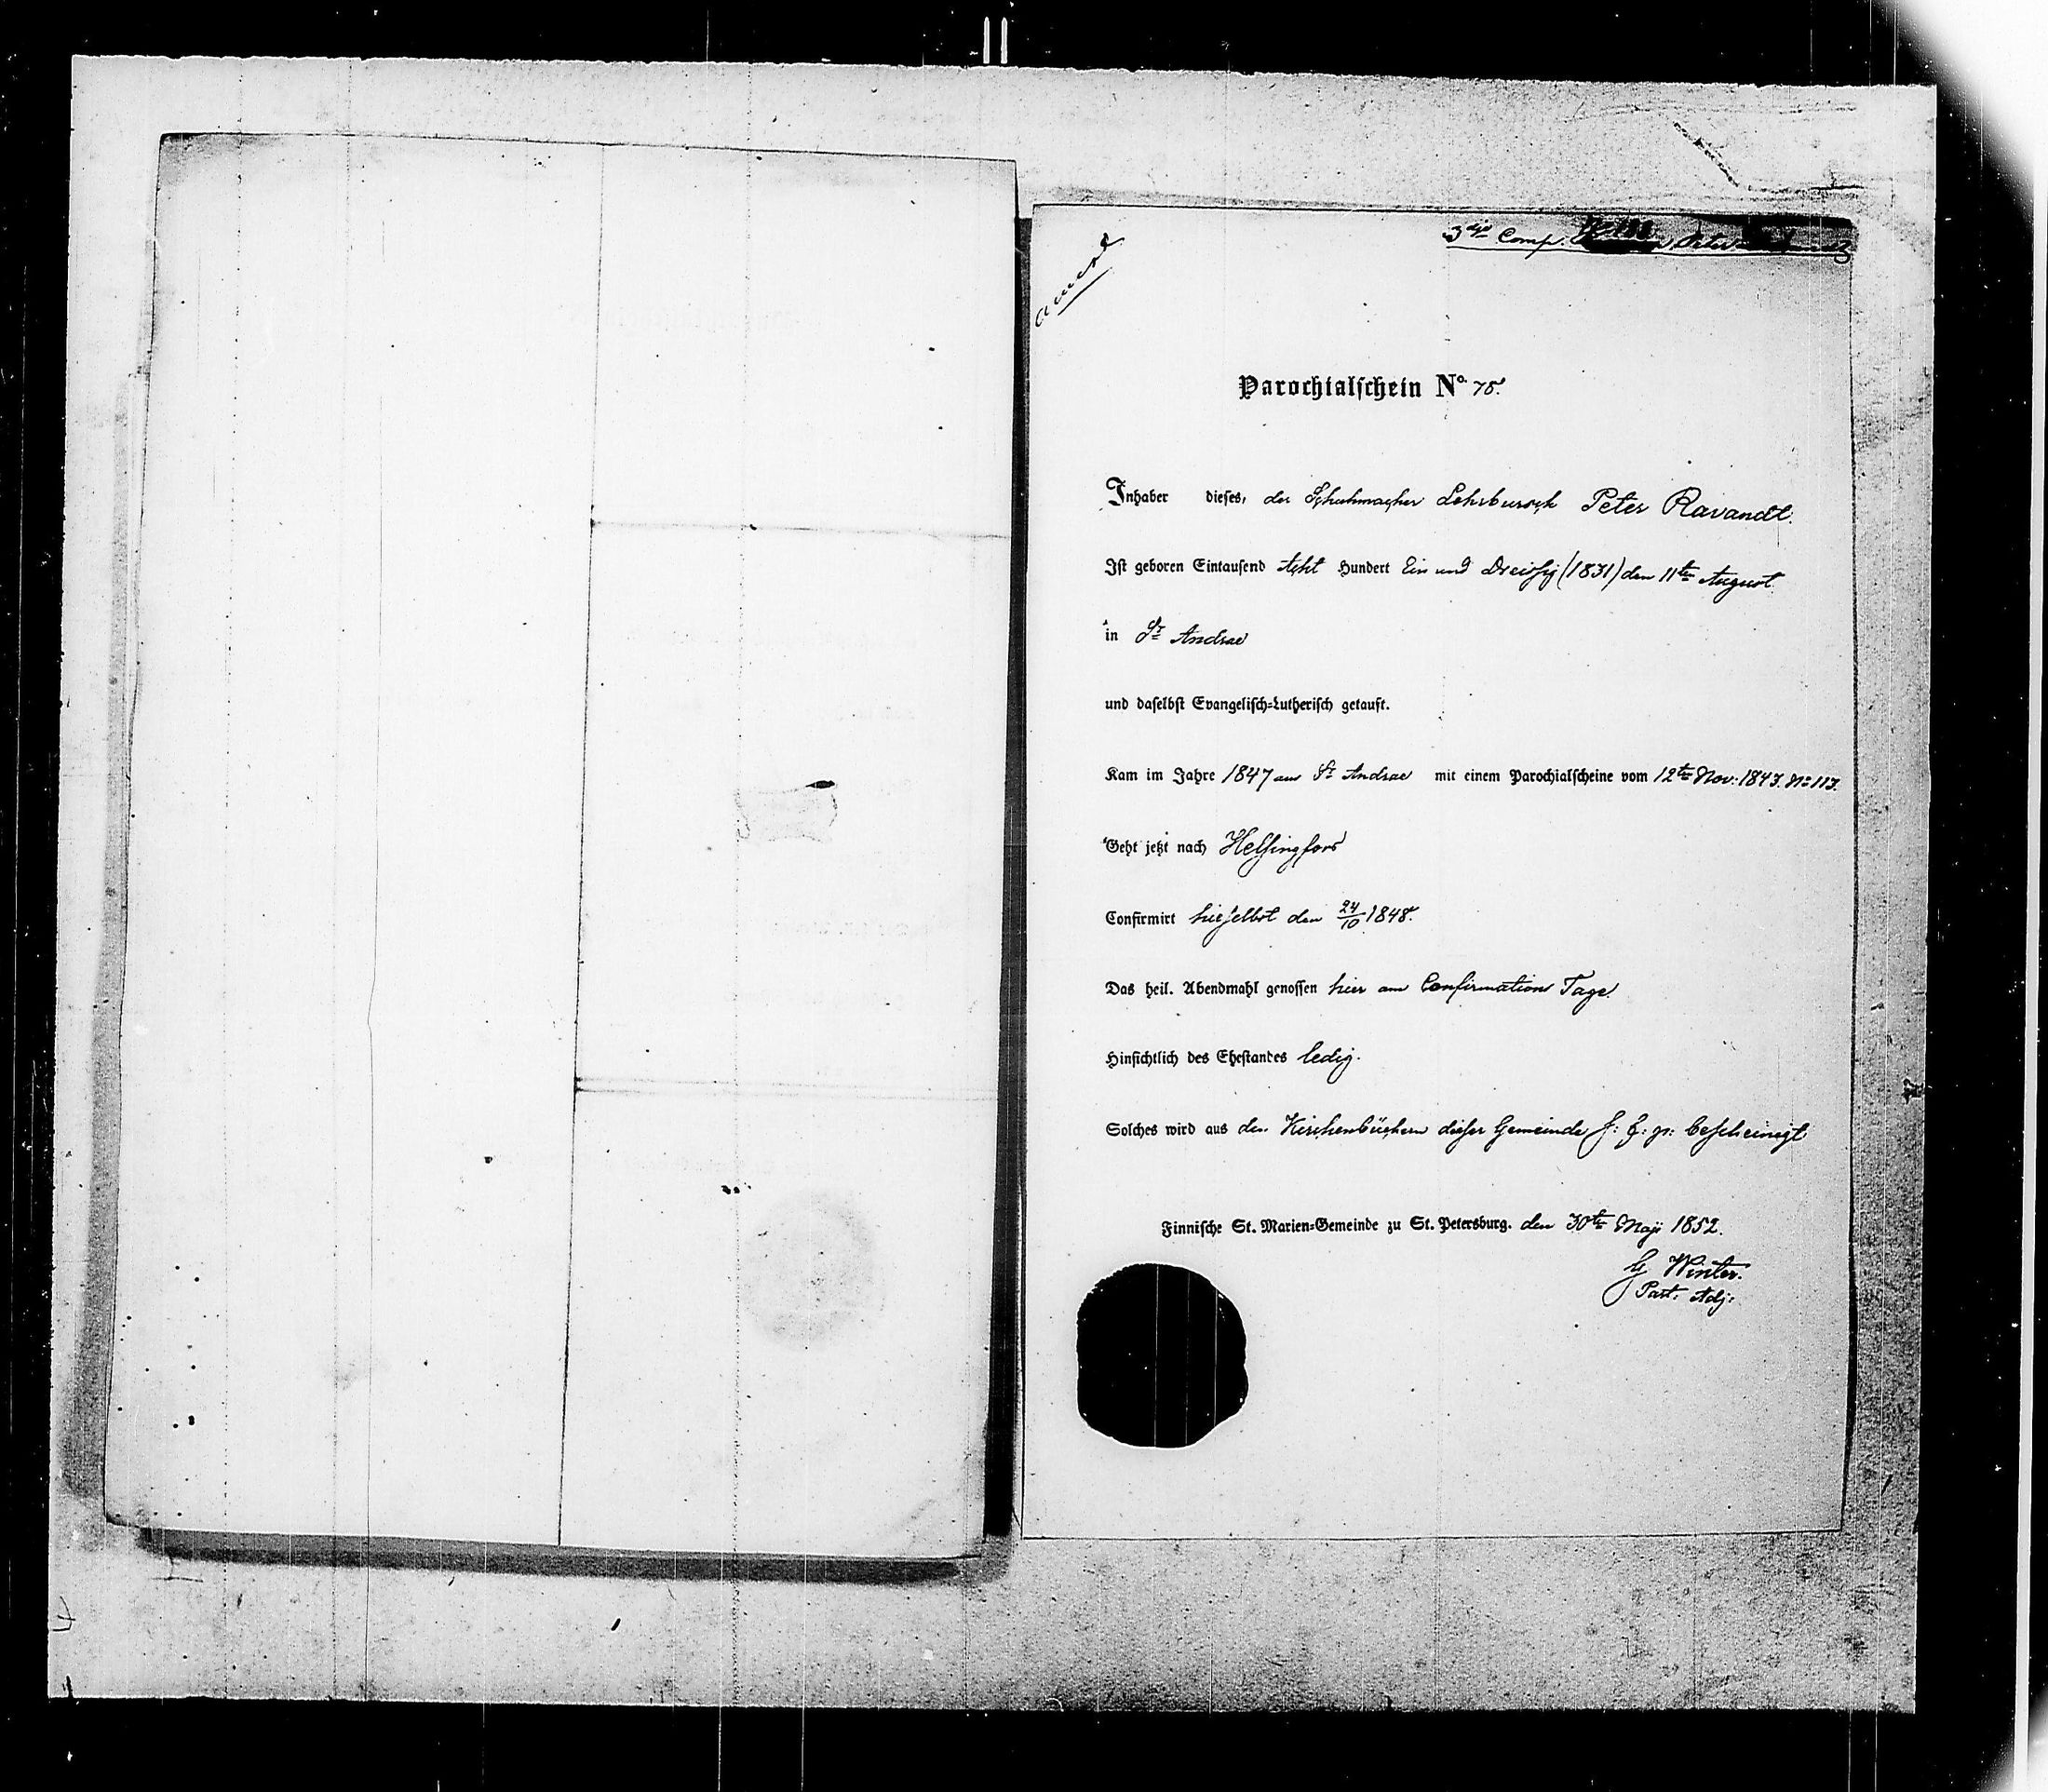 3dje Comp.
Parochialschein No. 75.
Inhaber dieses, der Schuhmacher Lehrbursch Peter Ravandt.
Ist geboren Eintausend Acht Hundert Ein und Dreißig (1831) den 11te August.
in St Andrae
und daselbst Evangelisch-Lutherisch getauft.
Kam im Jahre 1847 aus St Andrae mit einem Parochialscheine vom 12te Nov: 1843. No 113.
Geht jetzt nach Helsingfors
Confirmirt hieselbst den 24/10 1848.
Das heil. Abendmahl genossen hier am Confirmations Tage.
Hinsichtlich des Ehestandes ledig.
Solches wird aus den Kirchenbüchern dieser Gemeinde bescheinigt
Finnische St. Marien-Gemeinde zu St. Petersburg. den 30te Maji 1852.
G Winter.
Past. Adj: